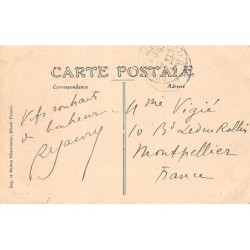 CARTE POSTALE
Correspondance
Adresse
Vifs souhaits
de bonheur
Mme Vigié
10 Bd Ledru Rollin
Montpellier
France